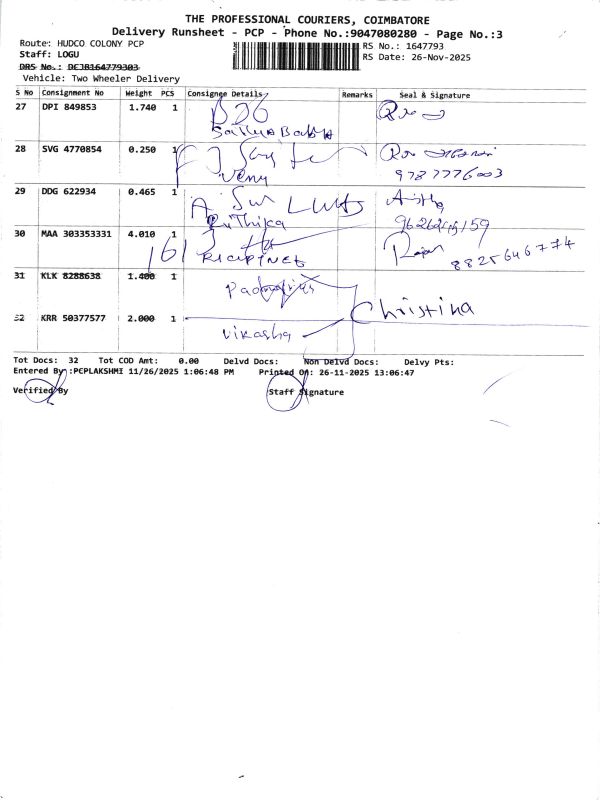 THE PROFESSIONAL COURIERS, COIMBATORE
Delivery Runsheet - PCP - Phone No.:9047080280 - Page No.:3
Route: HUDCO COLONY PCP
RS No.: 1647793
Staff: LOGU
RS Date: 26-Nov-2025
DRS No.: DCJB164779303
Vehicle: Two Wheeler Delivery
S No Consignment No Weight PCS Consignee Details Remarks Seal & Signature
27 DPI 849853 1.740 1
28 SVG 4770854 0.250 1
Venu 9787776003
29 DDG 622934 0.465 1
Rithika
30 MAA 303353331 4.010 1
161 8825646774
31 KLK 8288638 1.400 1
Christina
32 KRR 50377577 2.000 1
Vikasha
Tot Docs: 32 Tot COD Amt: 0.00 Delvd Docs: Non Delvd Docs: Delvy Pts:
Entered By :PCPLAKSHMI 11/26/2025 1:06:48 PM Printed On: 26-11-2025 13:06:47
Verified By Staff Signature